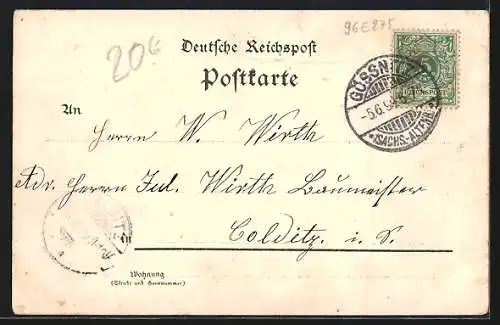 20 €
96E275
Deutsche Reichspost
Postkarte
REICHSPOST
GÖSSN
-5.6.
*(SACHS.-ALTBG.)
An
Herrn W. Wirth
Adr. Herrn Jul. Wirth Baumeister
in
Colditz i. S.
Wohnung
(Straße und Hausnummer)